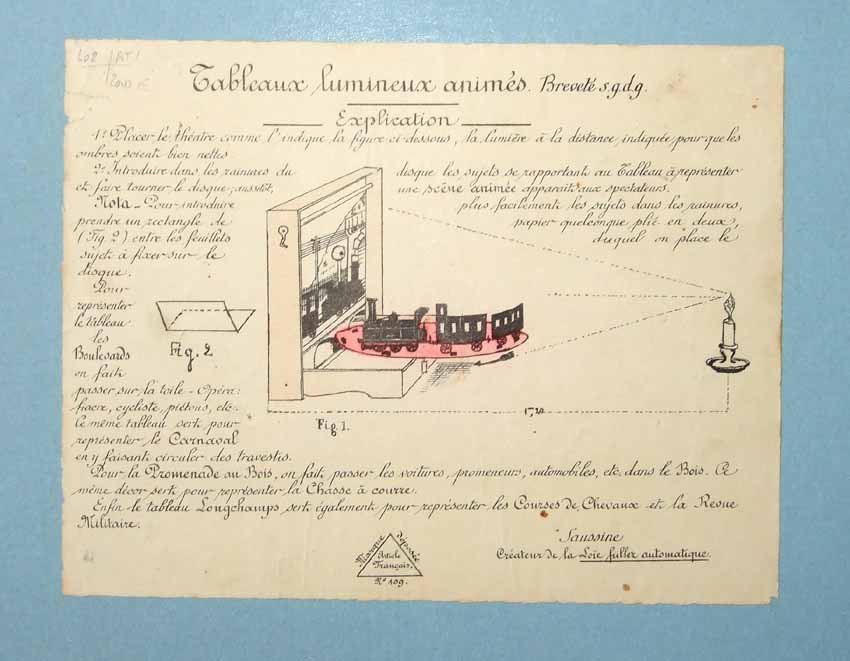 Tableaux lumineux animés. Breveté s.g.d.g.
Explication
1º Placer le théâtre comme l'indique la figure ci-dessous, la lumière à la distance indiquée pour que les
ombres soient bien nettes
2º Introduire dans les rainures du disque les sujets se rapportant au Tableau à représenter
et faire tourner le disque; aussitôt, une scène animée apparaît aux spectateurs.
Nota - Pour introduire plus facilement les sujets dans les rainures,
prendre un rectangle de papier quelconque plié en deux,
(Fig. 2) entre les feuillets duquel on place le
sujet à fixer sur le
disque.
Pour
représenter
le tableau
les
Boulevards
on fait
passer sur la toile - Opéra:
fiacre, cycliste, piétons, etc.
le même tableau sert pour
représenter le Carnaval
en y faisant circuler des travestis.
Fig. 2
Fig. 1.
Pour la Promenade au Bois, on fait passer les voitures, promeneurs, automobiles, etc. dans le Bois. Ce
même décor sert pour représenter la Chasse à courre.
Enfin le tableau Longchamps sert également pour représenter les Courses de Chevaux et la Revue
Militaire.
Marque déposée
Article
Français.
Nº 109.
Saussine
Créateur de la Loïe fuller automatique.